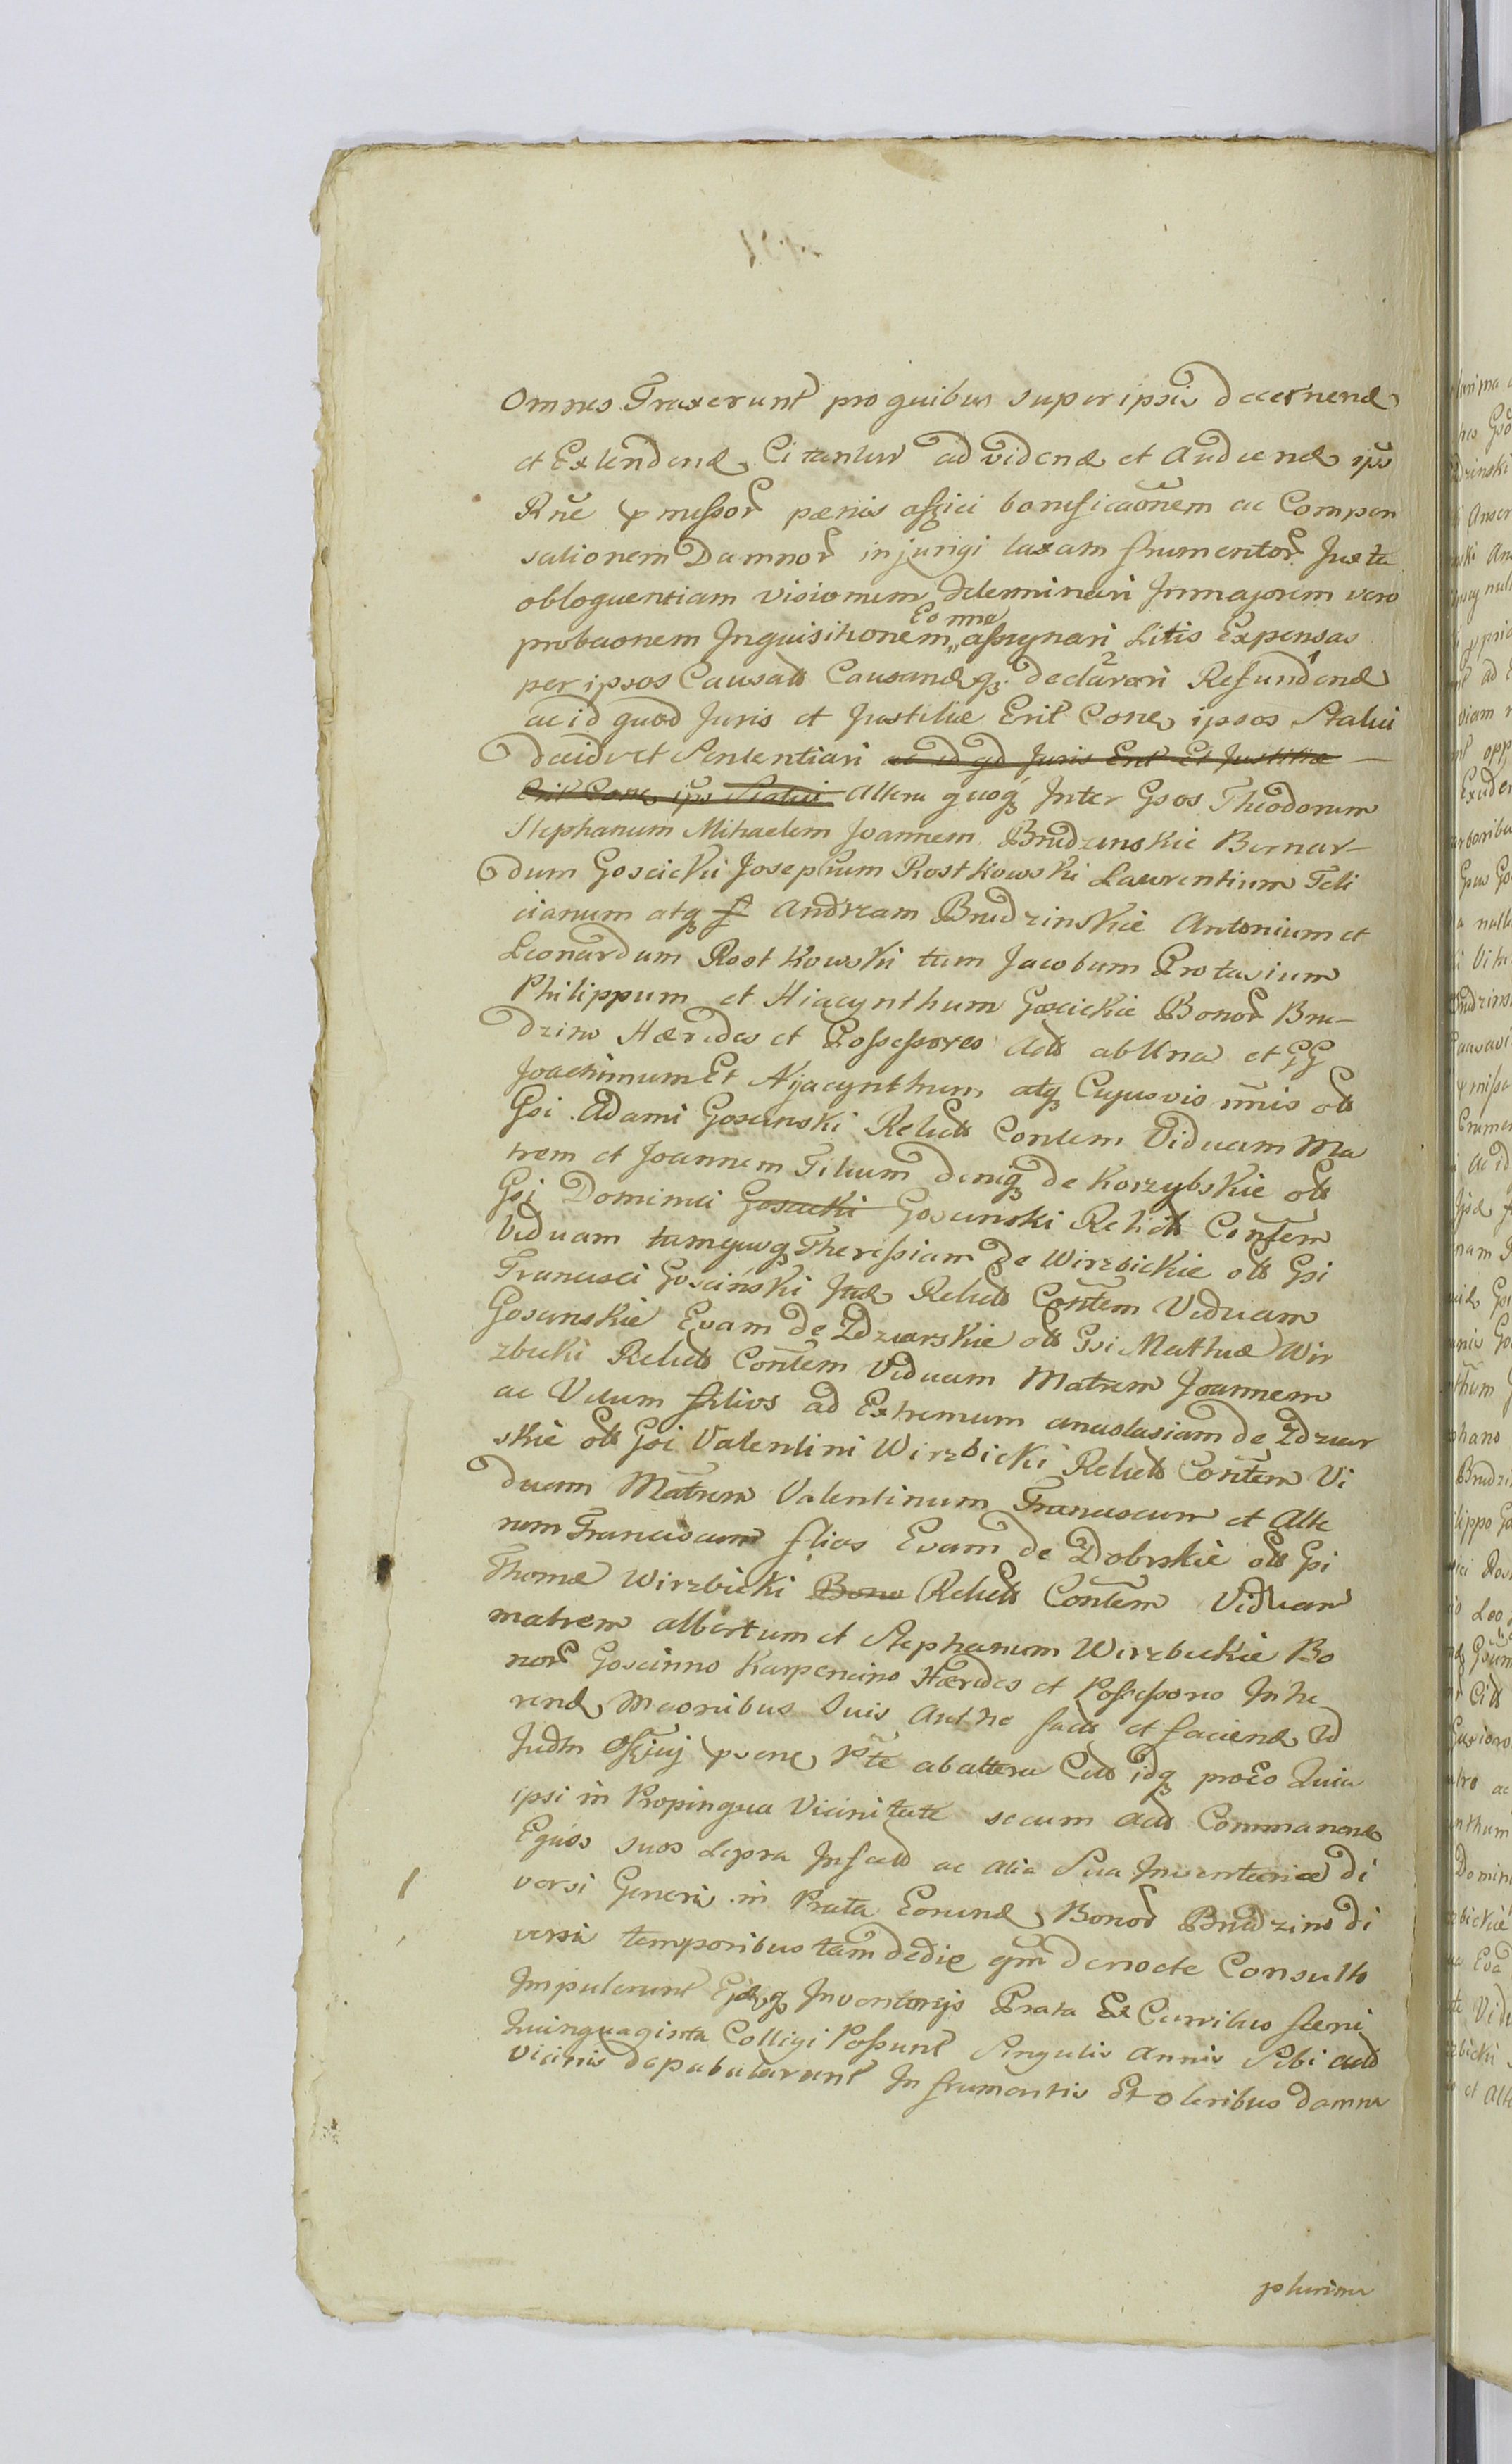 Omnes Traxerunt pro quibus super ipsis decernend
et Extendend Citantur ad vidend et Audiend ipsos
Rne pmissor pœnis affici bonificaonem ac Compen
sationem Damnor injungi taxam frumentor Juxta
obloquentiam visionum determinari Inmajorem vero
Eo nne
probaonem Inquisitionem,, assignari Litis Expensas
per ipsos Causatt Causandq declarari 2 Refundend 1
ac id quod Juris et Justitiæ Erit Cone ipsos Statui
decidi et Sententiari ac id qd Juris Erit Et Justitiæ
Erit Cone ipsos Statui Altera quoq Inter Gsos Theodorum
Stephanum Mihaelem Joannem Brudzinskie Bernar-
dum Goscicki Josephum Rostkowski Laurentium Feli
cianum atq Andream Brudzinskie Antonium et
Leonardum Rostkowski tum Jacobum Protasium
Philippum et Hiacynthum Goscickie Bonor Bru-
dzino Hæredes et Possessores Actt ab Una et GG
Joachimum Et Hyacynthum atq Cujusvis nnis olt
Gsi Adami Goscinski Relictt Contem Viduam Ma
trem et Joannem Filium deniq de Korzybskie olt
Gsi Dominici Goscicki Goscinski Relictt Contem
Viduam tamquoq Theressiam de Wirzbickie olt Gsi
Francisci Gosciński Itid Relictt Contem Viduam
Goscinskie Evam de Zdziarskie olt Gsi Mathiæ Wir
zbicki Relictt Contem Viduam Matrem Joannem
ac Vitum filios ad Extremum anastasiam de Zdziar
skie olt Gsi Valentini Wirzbicki Relictt Contem Vi
duam Matrem Valentinum Franciscum et Alte
rum Franciscum filios Evam de Dobrskie olt Gsi
Thomæ Wirzbicki Bono Relictt Contem Viduam
matrem albertum et Stephanum Wirzbickie Bo
nor Goscinno Karpęcino Hæredes et Possessores Inhe
rend Mconibus Suis Anthe factt et faciend Ad
Judm pns Pte ab altera Citt idq proeo Quia
ipsi in Propinqua Vicinitate secum Actt Commanend
Equos suos Lepra Infectt ac alia Sua Inventaria di
versi Generis in Prata Eorund Bonor Brudzino di
versis temporibus tam dedie qm denocte Consulto
Impulerunt Ejdq Inventarijs Prata Ex Curribus fæni
Quinquaginta Colligi Possunt Singulis Annis Sibi actt
Vicinis depabularunt In frumentis Et oleribus damna
plurima